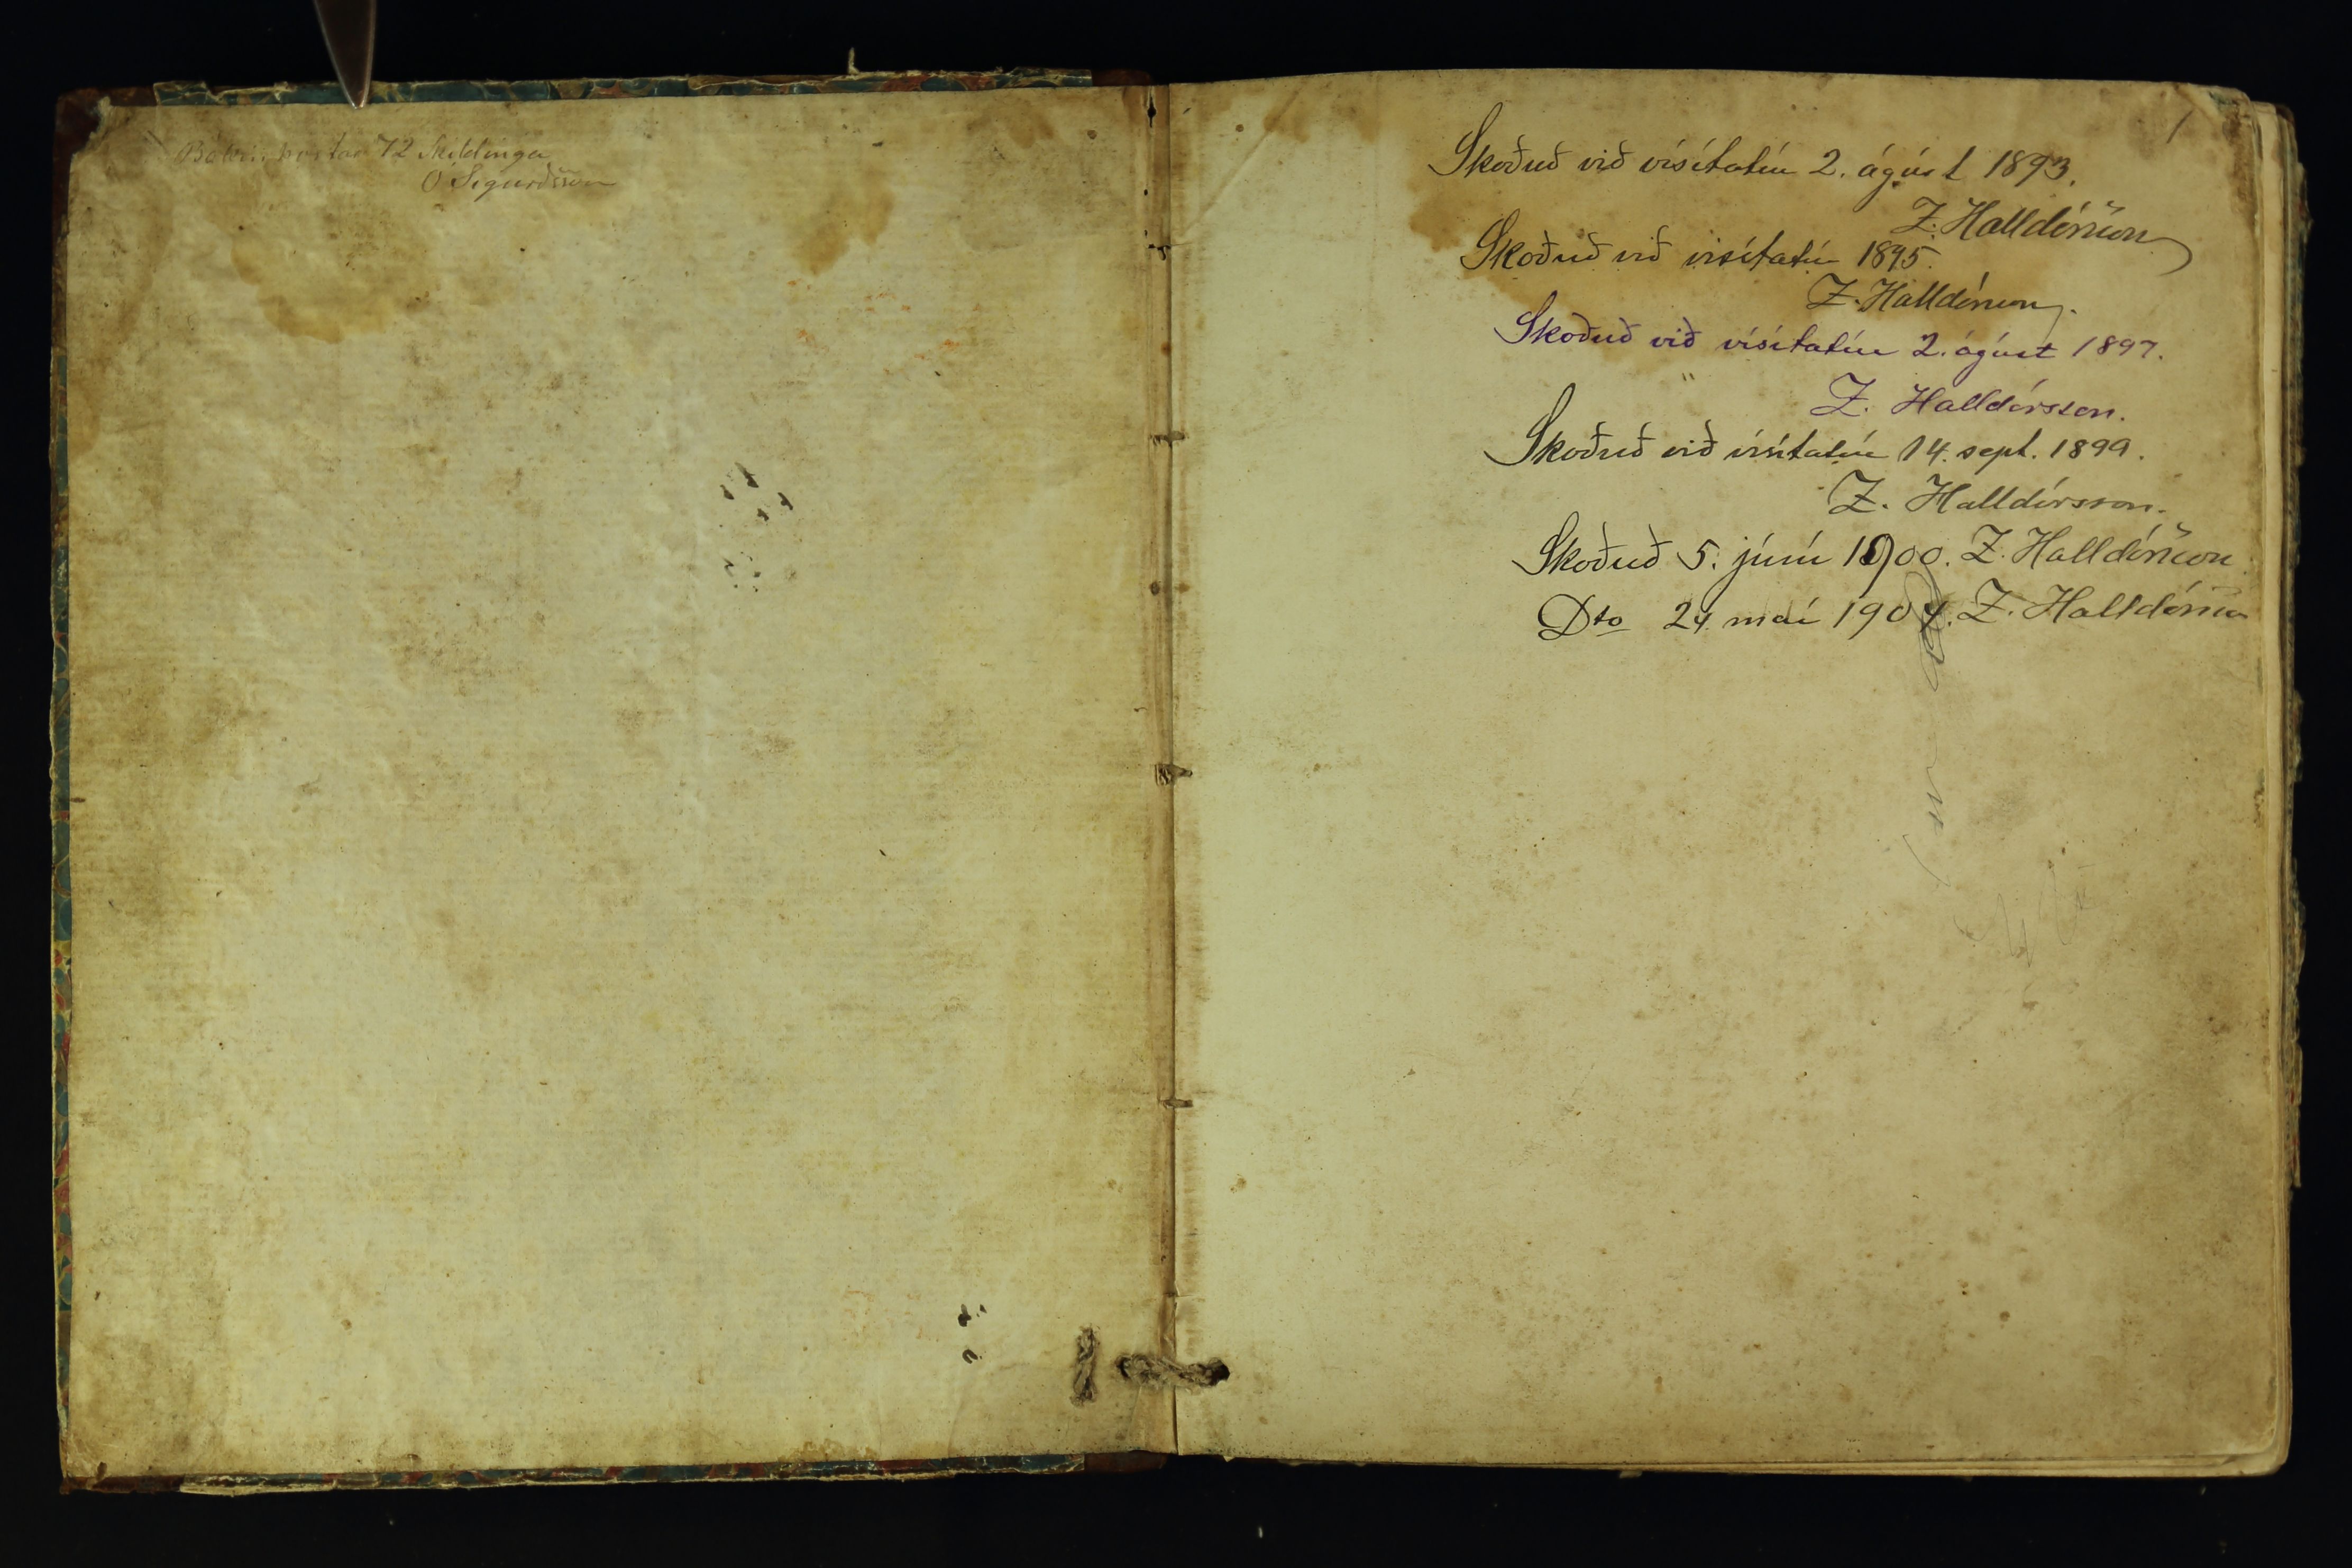 Bókin kostar 72 Skildinga
O Sigurdsson
1
Skoðuð við vísítatíu 2. ágúst 1893.
Z. Halldórsson
Skoðuð við vísítatíu 1895.
Z. Halldórsson.
Skoðuð við vísítatíu 2. ágúst 1897.
Z. Halldórsson.
Skoðuð við vísítatíu 14. sept. 1899.
Z. Halldórsson.
Skoðuð 5. júní 1900. Z. Halldórsson
Dto 24. maí 1904. Z. Halldórsson